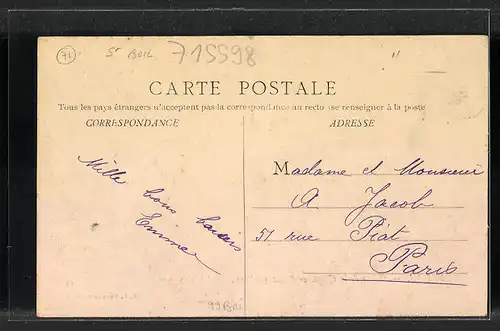 71 St BOIL 715598
CARTE POSTALE
Tous les pays étrangers n'acceptent pas la correspondance au recto (se renseigner à la poste
CORRESPONDANCE
ADRESSE
Mille bons baisers
Emma
Madame et Monsieur
A Jacob
51 rue Piat
Paris